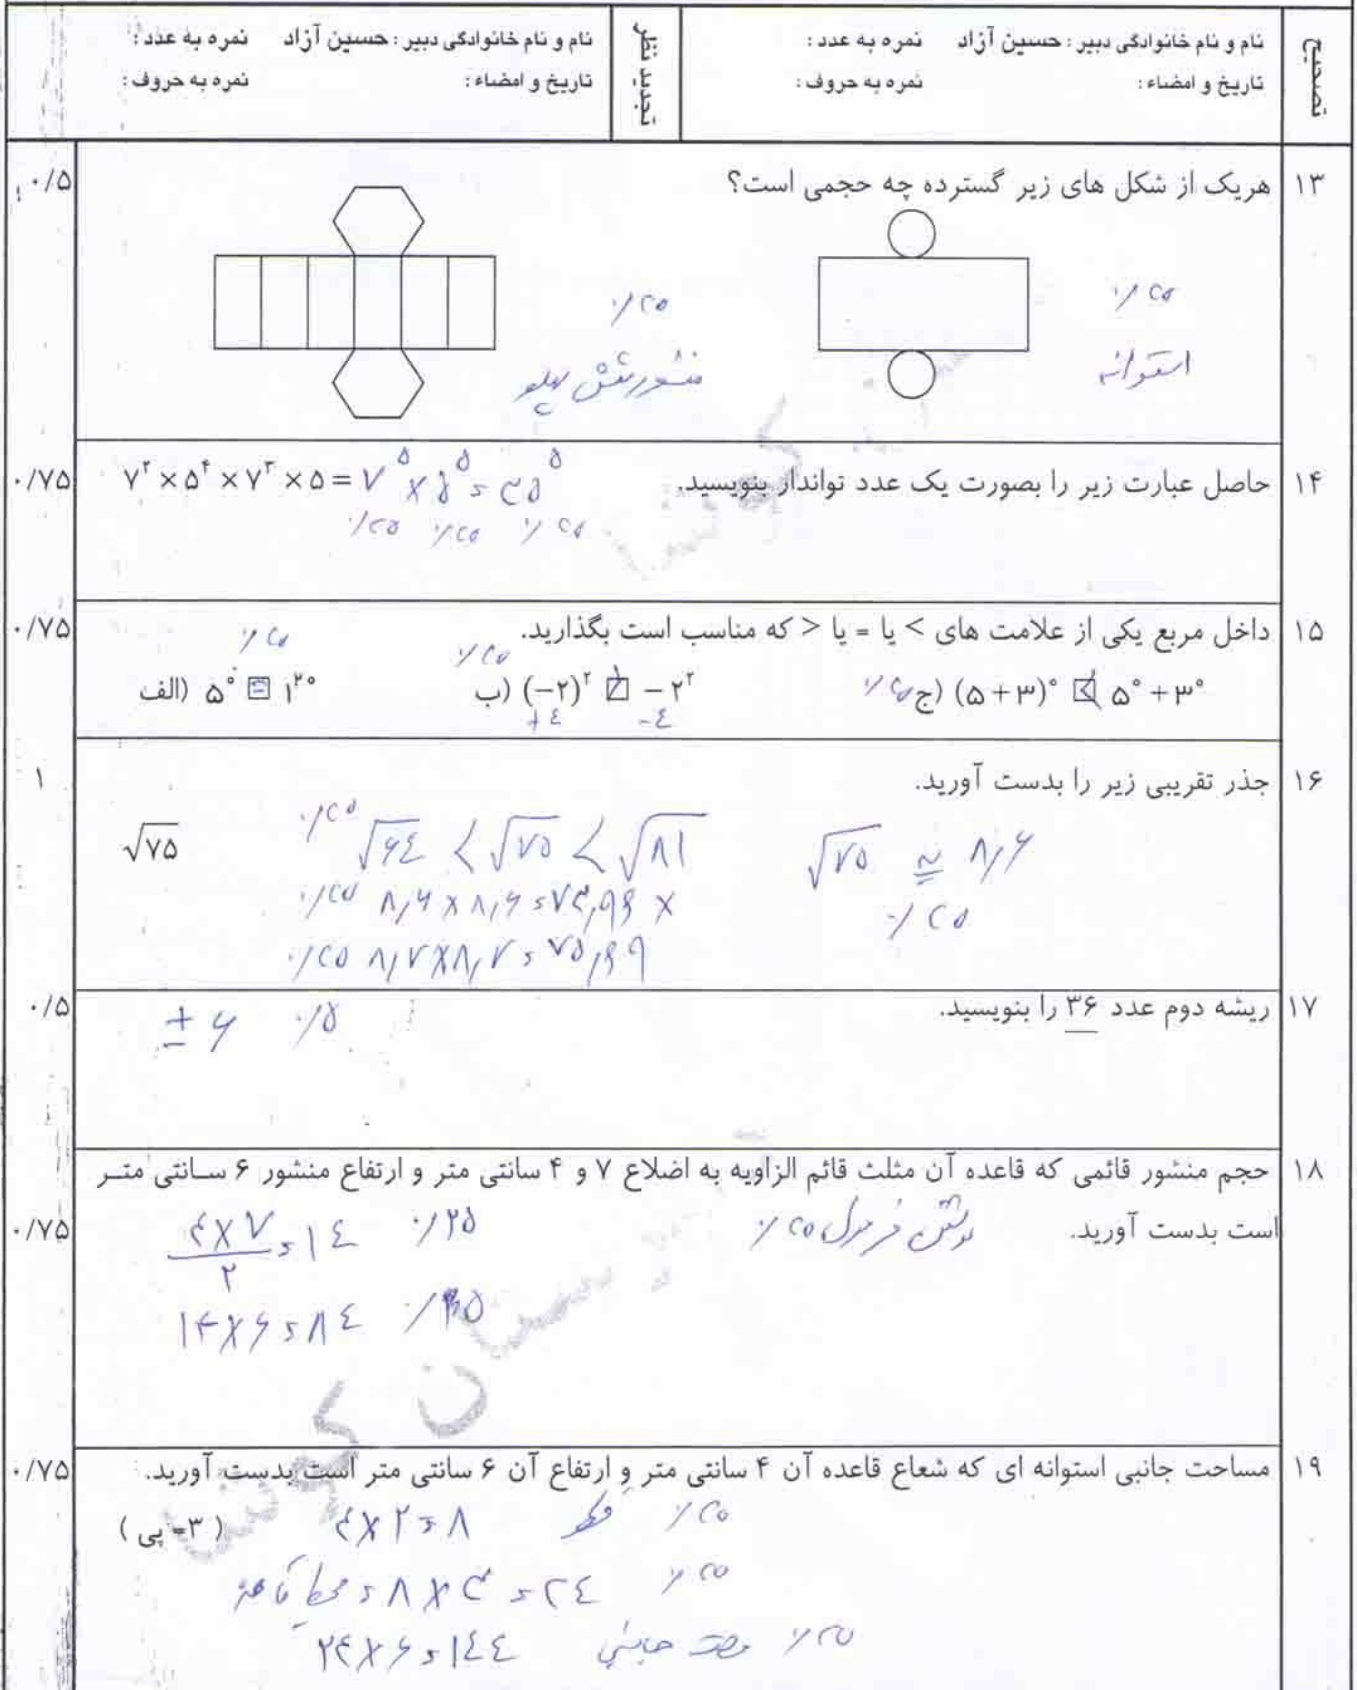 تصحیح
نام و نام خانوادگی دبیر : حسین آزاد نمره به عدد :
تاریخ و امضاء : نمره به حروف :
تجدید نظر
نام و نام خانوادگی دبیر : حسین آزاد نمره به عدد :
تاریخ و امضاء : نمره به حروف :
۱۳ هریک از شکل های زیر گسترده چه حجمی است؟ ۰/۵
۰/۲۵ ۰/۲۵
استوانه منشور شش پهلو
۱۴ حاصل عبارت زیر را بصورت یک عدد تواندار بنویسید. ۰/۷۵
۷^۲ × ۵^۴ × ۷^۳ × ۵ = ۷^۵ × ۵^۵ = ۳۵^۵
۰/۲۵ ۰/۲۵ ۰/۲۵
۱۵ داخل مربع یکی از علامت های > یا = یا < که مناسب است بگذارید. ۰/۷۵
الف) ۵^۰ = ۱^۲۰ ۰/۲۵
ب) (−۲)^۲ > −۲^۲ ۰/۲۵
+۴ −۴
ج) (۵+۳)^۰ < ۵^۰+۳^۰ ۰/۲۵
۱۶ جذر تقریبی زیر را بدست آورید. ۱
√۷۵ ۰/۲۵ √۶۴ < √۷۵ < √۸۱ √۷۵ ≃ ۸٫۶
۰/۲۵ ۸٫۶ × ۸٫۶ = ۷۳٫۹۶ × ۰/۲۵
۰/۲۵ ۸٫۷ × ۸٫۷ = ۷۵٫۶۹
۱۷ ریشه دوم عدد ۳۶ را بنویسید. ۰/۵
± ۶ ۰/۵
۱۸ حجم منشور قائمی که قاعده آن مثلث قائم الزاویه به اضلاع ۷ و ۴ سانتی متر و ارتفاع منشور ۶ سانتی متر
است بدست آورید. ۰/۷۵
نوشتن فرمول ۰/۲۵
۴×۷/۲ = ۱۴ ۰/۲۵
۱۴×۶=۸۴ ۰/۲۵
۱۹ مساحت جانبی استوانه ای که شعاع قاعده آن ۴ سانتی متر و ارتفاع آن ۶ سانتی متر است بدست آورید. ۰/۷۵
( ۳= پی )
۴×۲=۸ قطر ۰/۲۵
محیط قاعده = ۸×۳ = ۲۴ ۰/۲۵
۲۴×۶=۱۴۴ مساحت جانبی ۰/۲۵